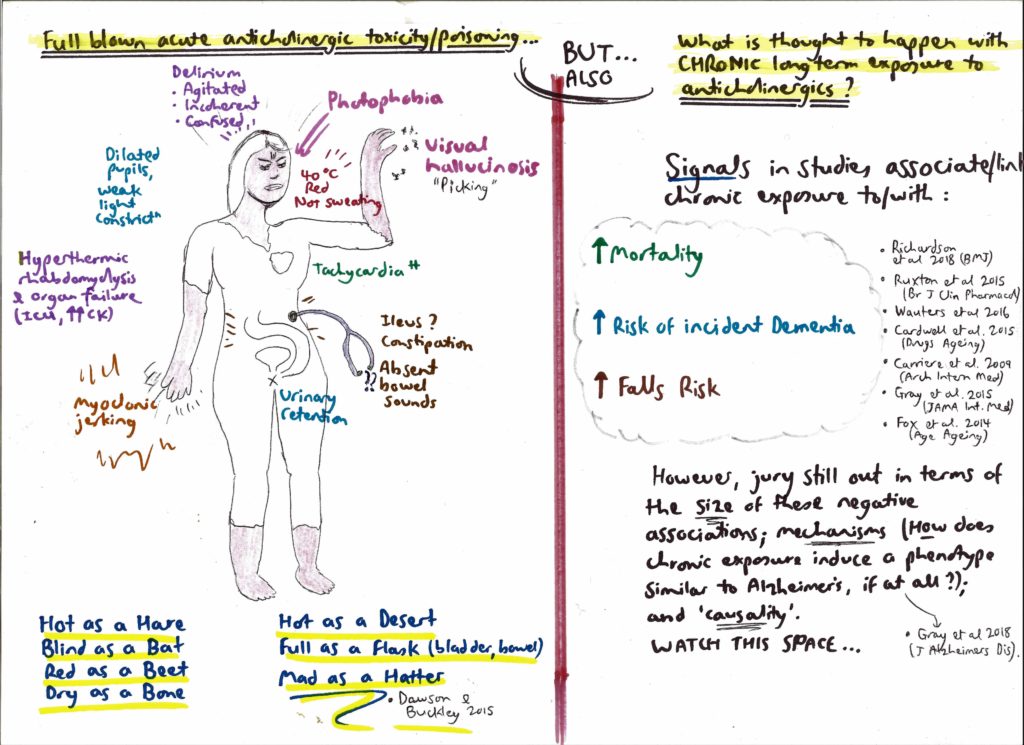 Full blown acute anticholinergic toxicity/poisoning...
Delirium
• Agitated
• Incoherent
• Confused
Photophobia
Dilated
pupils,
weak
light
constrictⁿ
40°C
Red
Not sweating
Visual
hallucinosis
"Picking"
Hyperthermic
rhabdomyolysis
& organ failure
(ICU, ↑↑CK)
Tachycardia
Ileus?
Constipation
??
Absent
bowel
sounds
Urinary
retention
Myoclonic
jerking
Hot as a Hare
Blind as a Bat
Red as a Beet
Dry as a Bone
Hot as a Desert
Full as a Flask (bladder, bowel)
Mad as a Hatter
• Dawson &
Buckley 2015
BUT...
ALSO
What is thought to happen with
CHRONIC long term exposure to
anticholinergics?
Signals in studies associate/link
chronic exposure to/with:
↑ Mortality
↑ Risk of incident Dementia
↑ Falls Risk
• Richardson
et al 2018 (BMJ)
• Ruxton et al 2015
(Br J Clin Pharmacol)
• Wauters et al 2016
• Cardwell et al. 2015
(Drugs Ageing)
• Carriere et al. 2009
(Arch Intern Med)
• Gray et al. 2015
(JAMA Int. Med)
• Fox et al. 2014
(Age Ageing)
However, jury still out in terms of
the size of these negative
associations; mechanisms (How does
chronic exposure induce a phenotype
similar to Alzheimer's, if at all?);
and 'causality'.
WATCH THIS SPACE...
• Gray et al 2018
(J Alzheimers Dis).